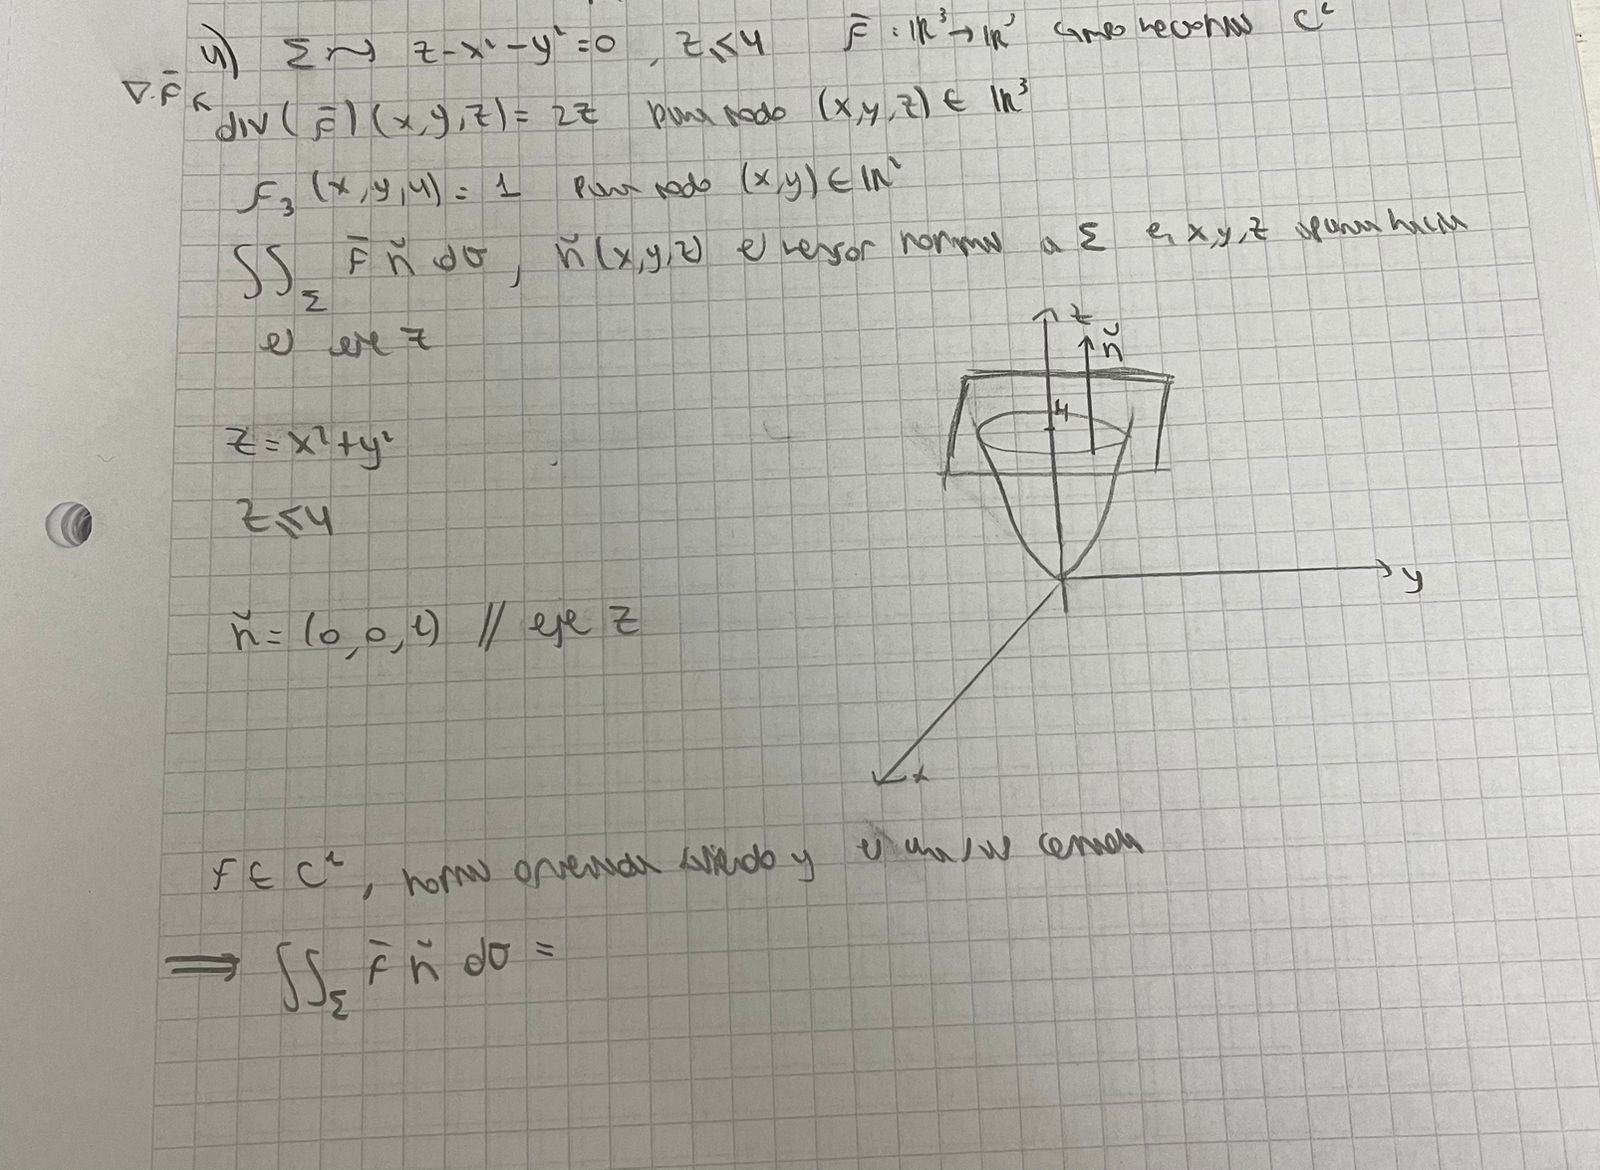 4) Σ ~ z-x²-y²=0 , z≤4 F̄ : ℝ³→ℝ³ campo vectorial C²
∇.F̄
div(F̄)(x,y,z)= 2z para todo (x,y,z) ∈ ℝ³
F₃(x,y,4) = 1 para todo (x,y) ∈ ℝ²
∬_Σ F̄ n̆ dσ , n̆(x,y,z) el versor normal a Σ en x,y,z apunta hacia
el eje z
z
n̆
4
z=x²+y²
z≤4
y
n̆= (0,0,1) // eje z
x
F ∈ C², normal orientada y es una sup cerrada
⟹ ∬_Σ F̄ n̆ dσ =